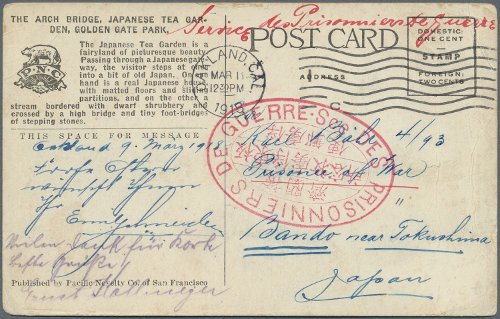 THE ARCH BRIDGE, JAPANESE TEA GAR-
DEN, GOLDEN GATE PARK.
The Japanese Tea Garden is a
fairyland of picturesque beauty.
Passing through a Japanese gate-
way, the visitor steps at on
into a bit of old Japan. On
hand is a real Japanese hous
with matted floors and slidi
partitions, and on the other a
stream bordered with dwarf shrubbery and
crossed by a high bridge and tiny foot-bridges
of stepping stones.
P N C
Service des Prisonniers de Guerre
POST CARD
DOMESTIC
ONE CENT
STAMP
FOREIGN
TWO CENTS
OAKLAND, CAL.
MAR 11
12 30 PM
1918
ADDRESS
THIS SPACE FOR MESSAGE
Oakland 9. März 1918
Frohe
wünscht Ihnen
Ihr
Emil Schneider
Vielen Dank für Karte
Beste Grüße!
Published by Pacific Novelty Co. of San Francisco
SERVICE DES PRISONNIERS DE GUERRE
Karl 4/93
Prisoner of War
"
Bando near Tokushima
Japan